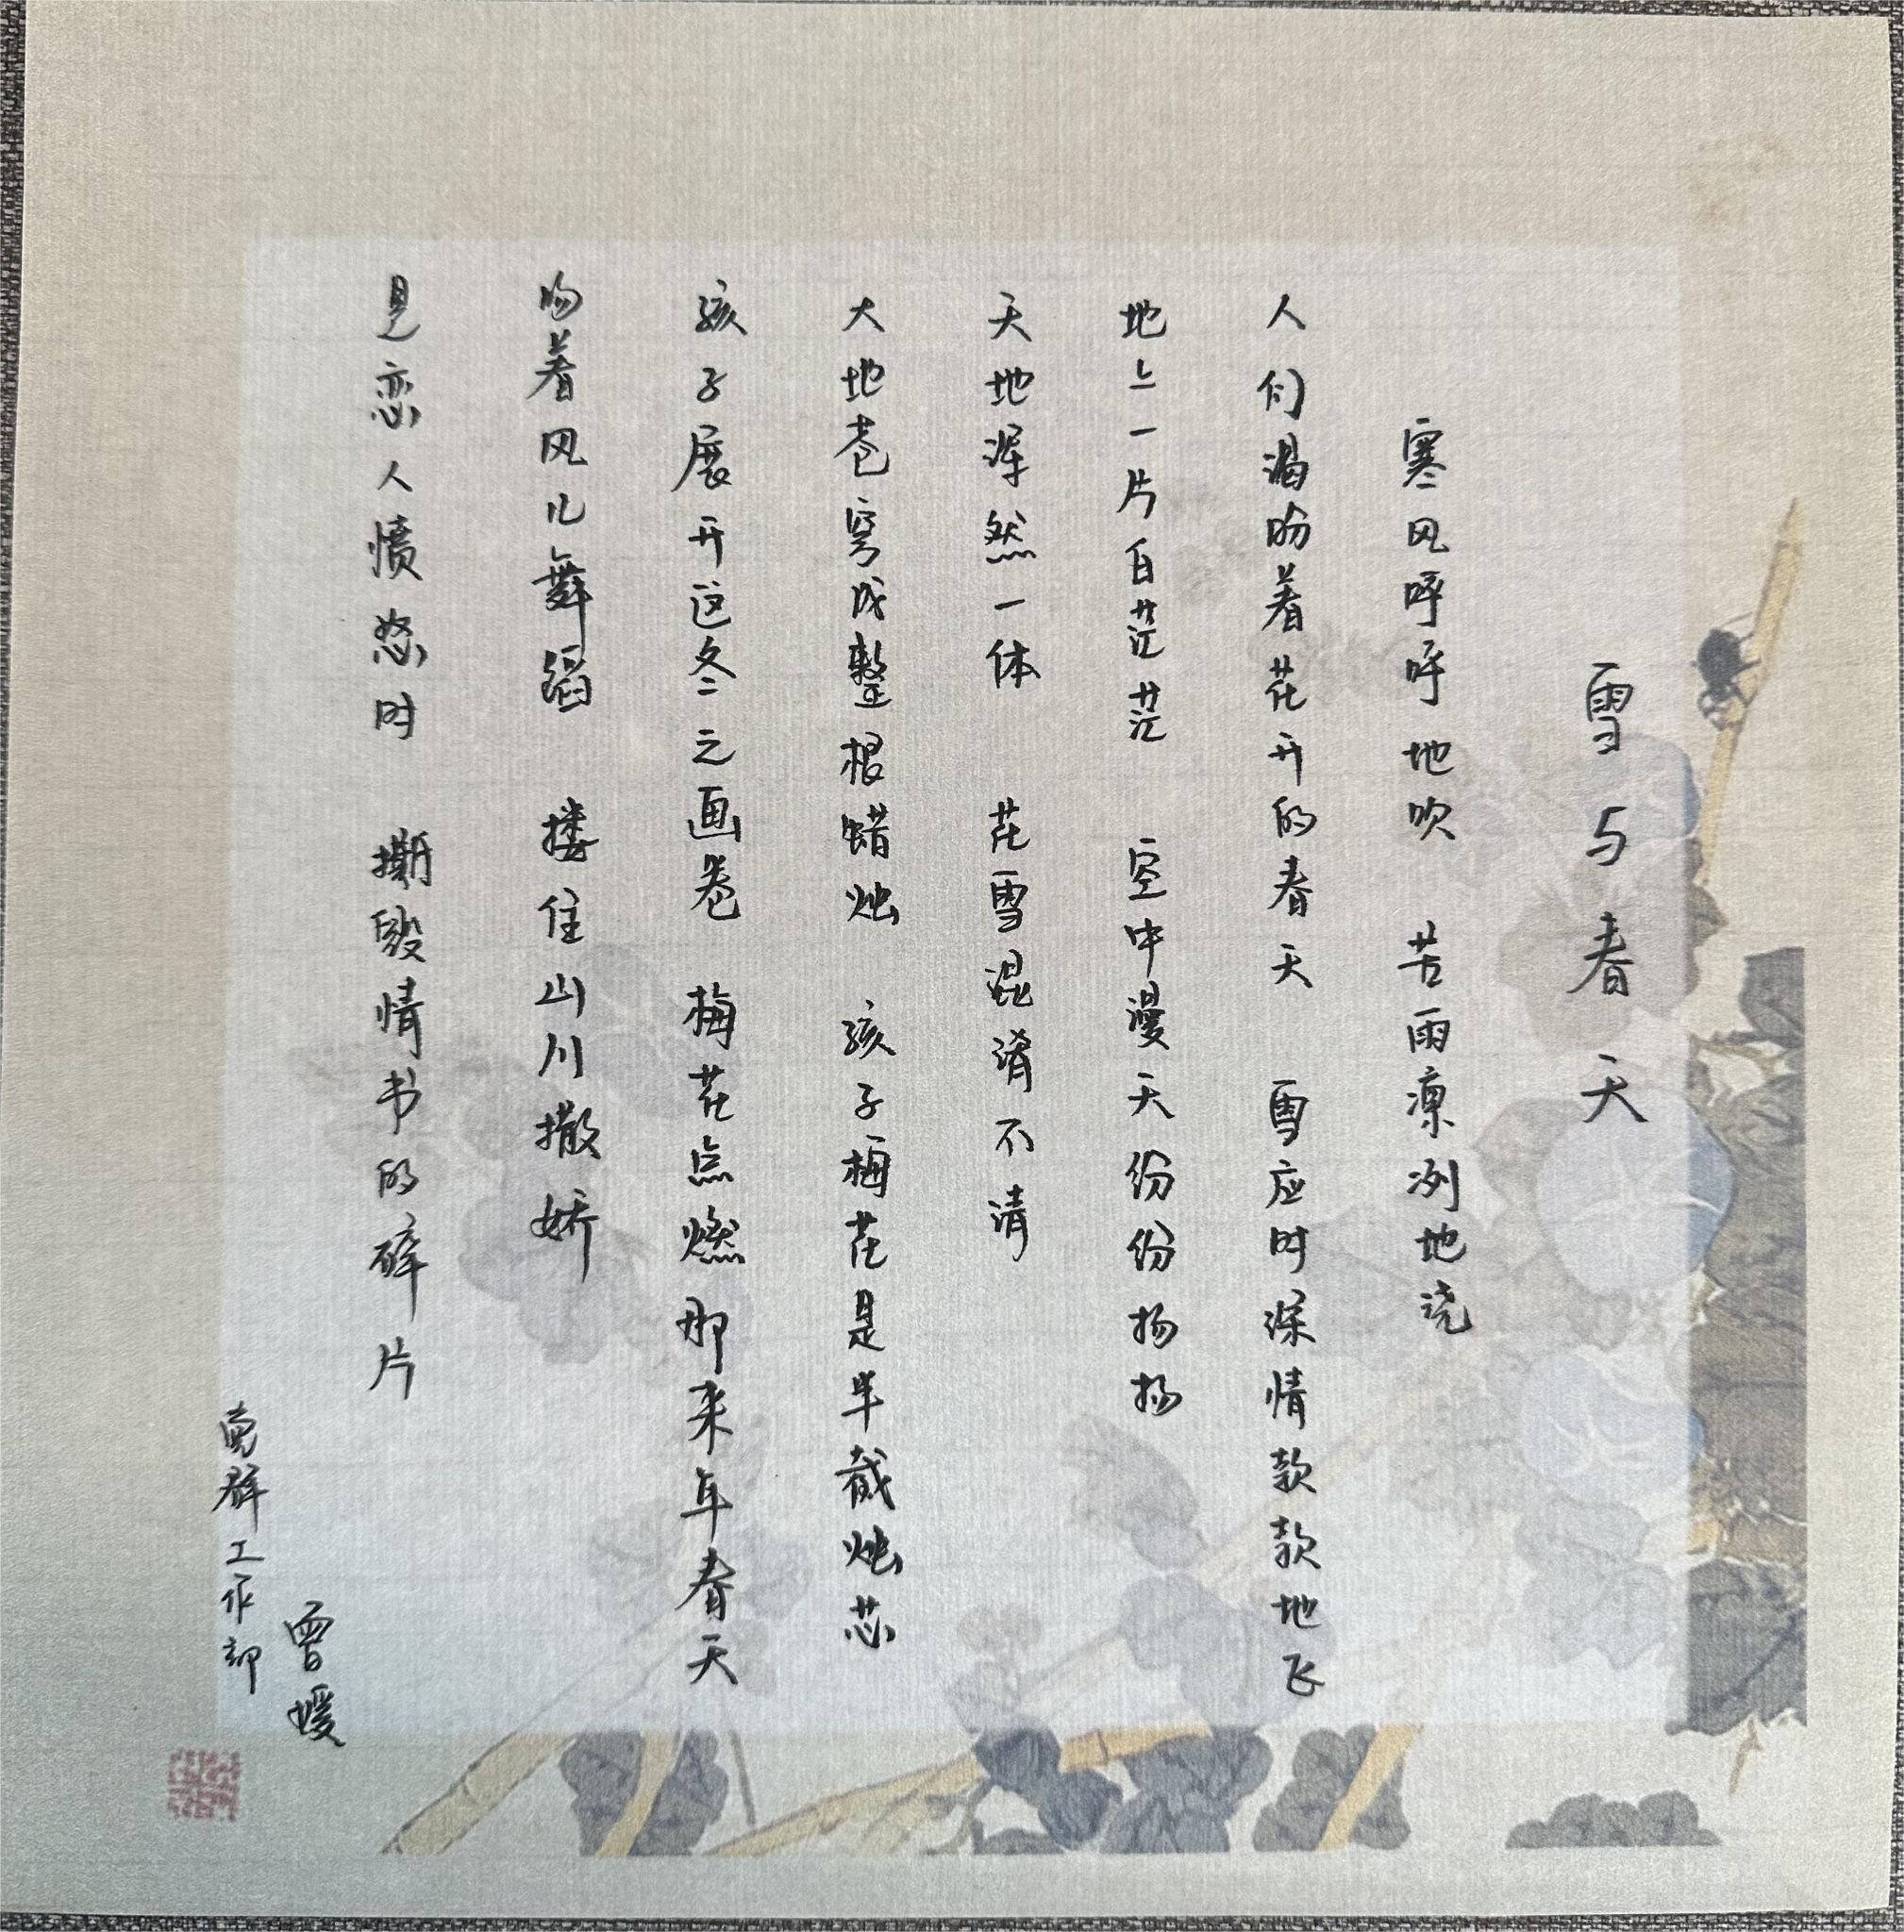 雪与春天
寒风呼呼地吹 苦雨凛冽地浇
人们渴盼着花开的春天 雪应时深情款款地飞
地上一片白茫茫 空中漫天份份扬扬
天地浑然一体 花雪混淆不清
大地苍穹成整根蜡烛 孩子梅花是半截烛芯
孩子展开这冬之画卷 梅花点燃那来年春天
吻着风儿舞蹈 搂住山川撒娇
见恋人愤怒时 撕毁情书的碎片
曾媛
党群工作部